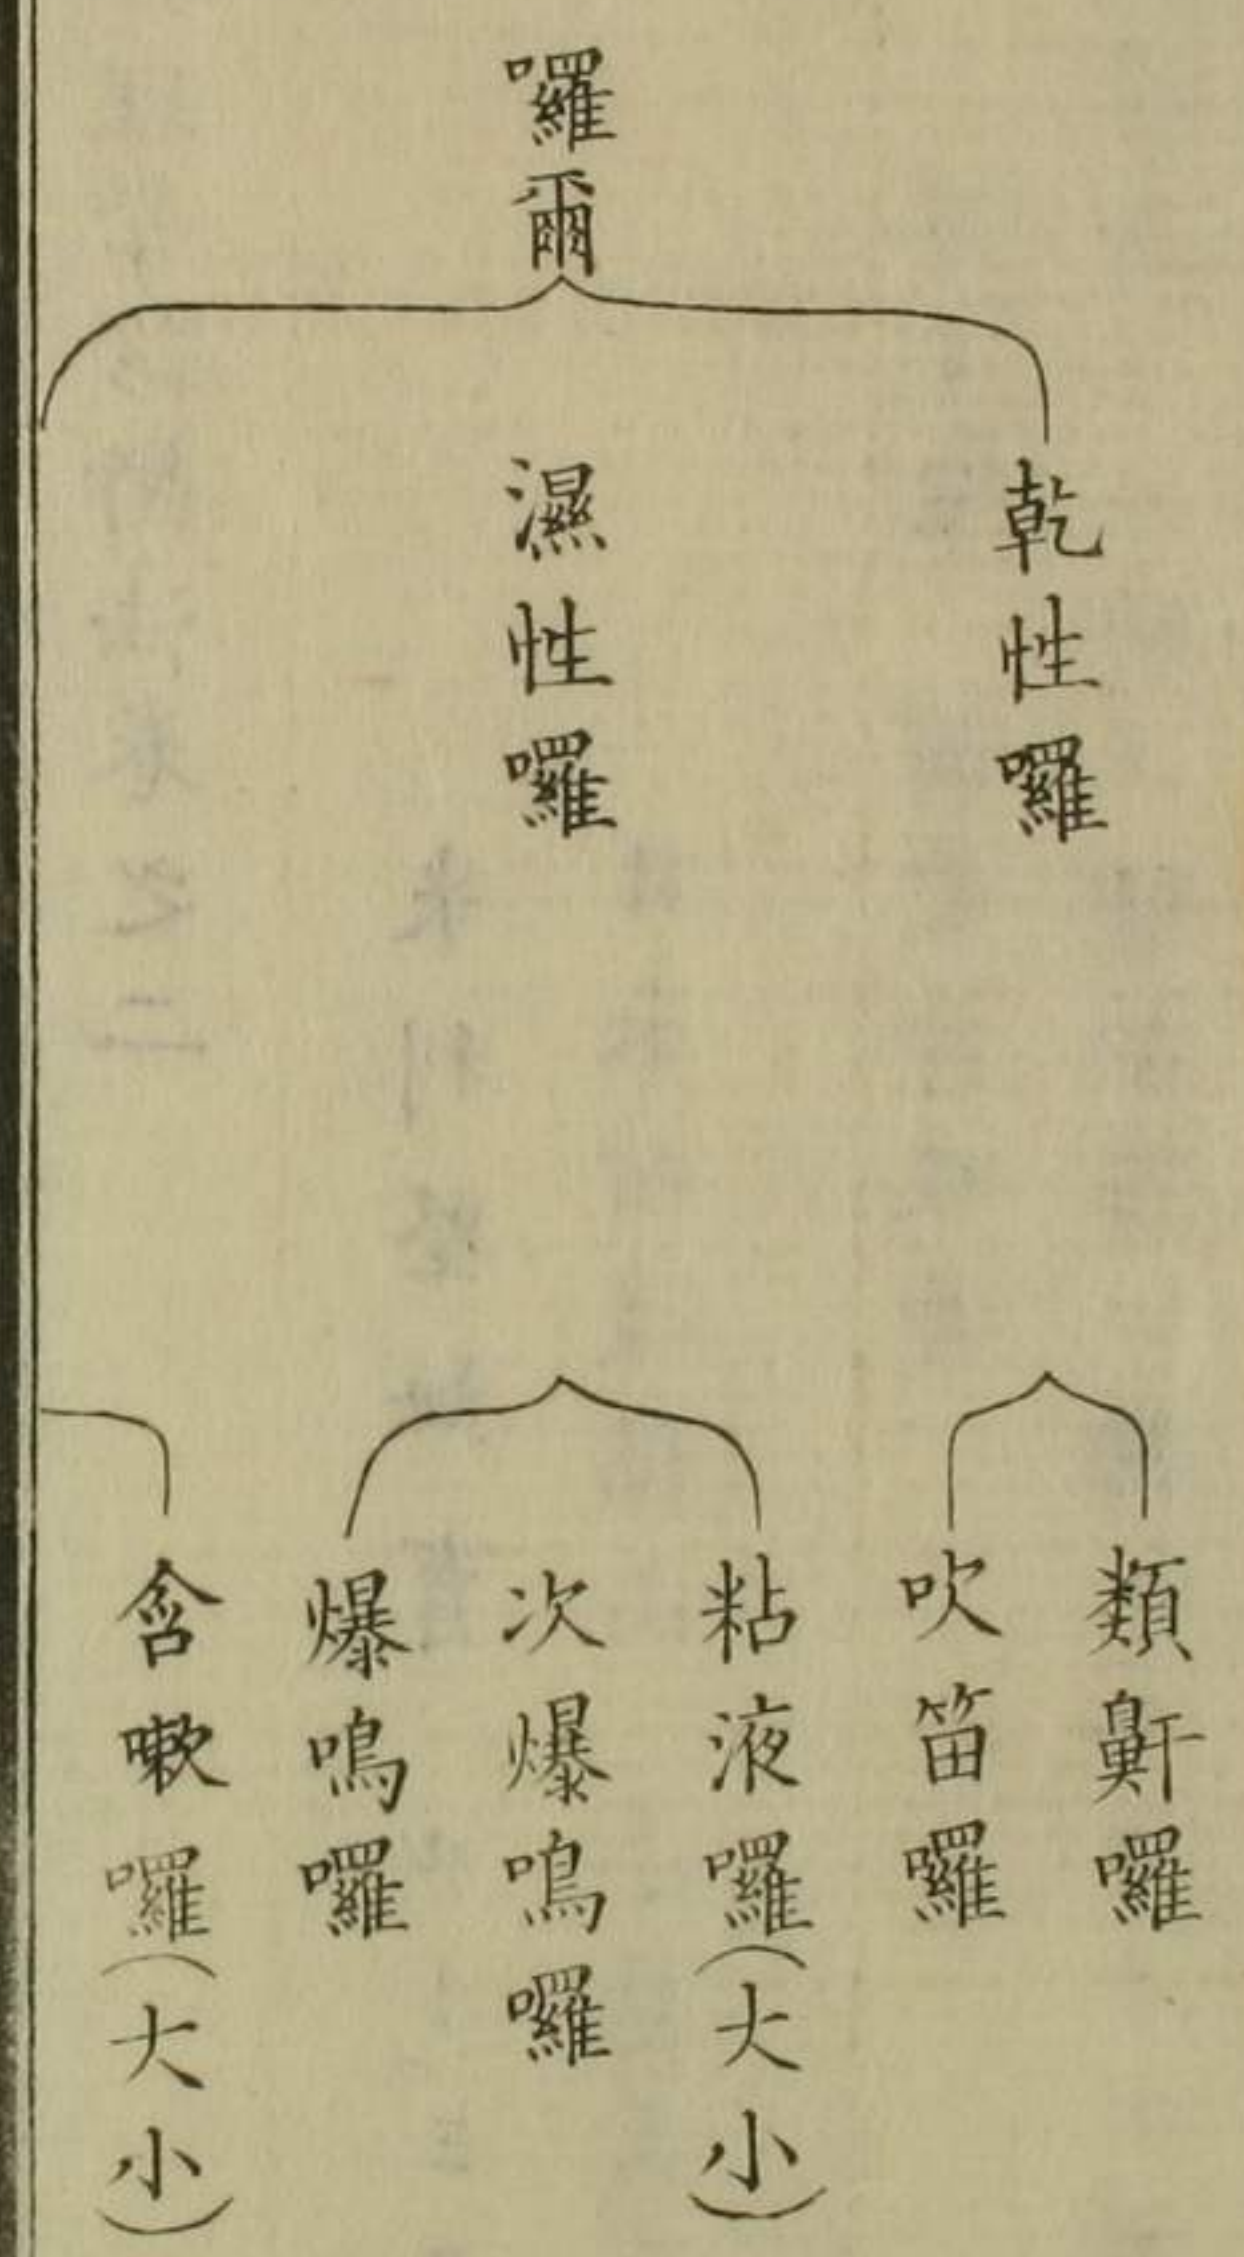 囉爾
乾性囉
濕性囉
類鼾囉
吹笛囉
粘液囉(大小)
次爆鳴囉
爆鳴囉
含嗽囉(大小)